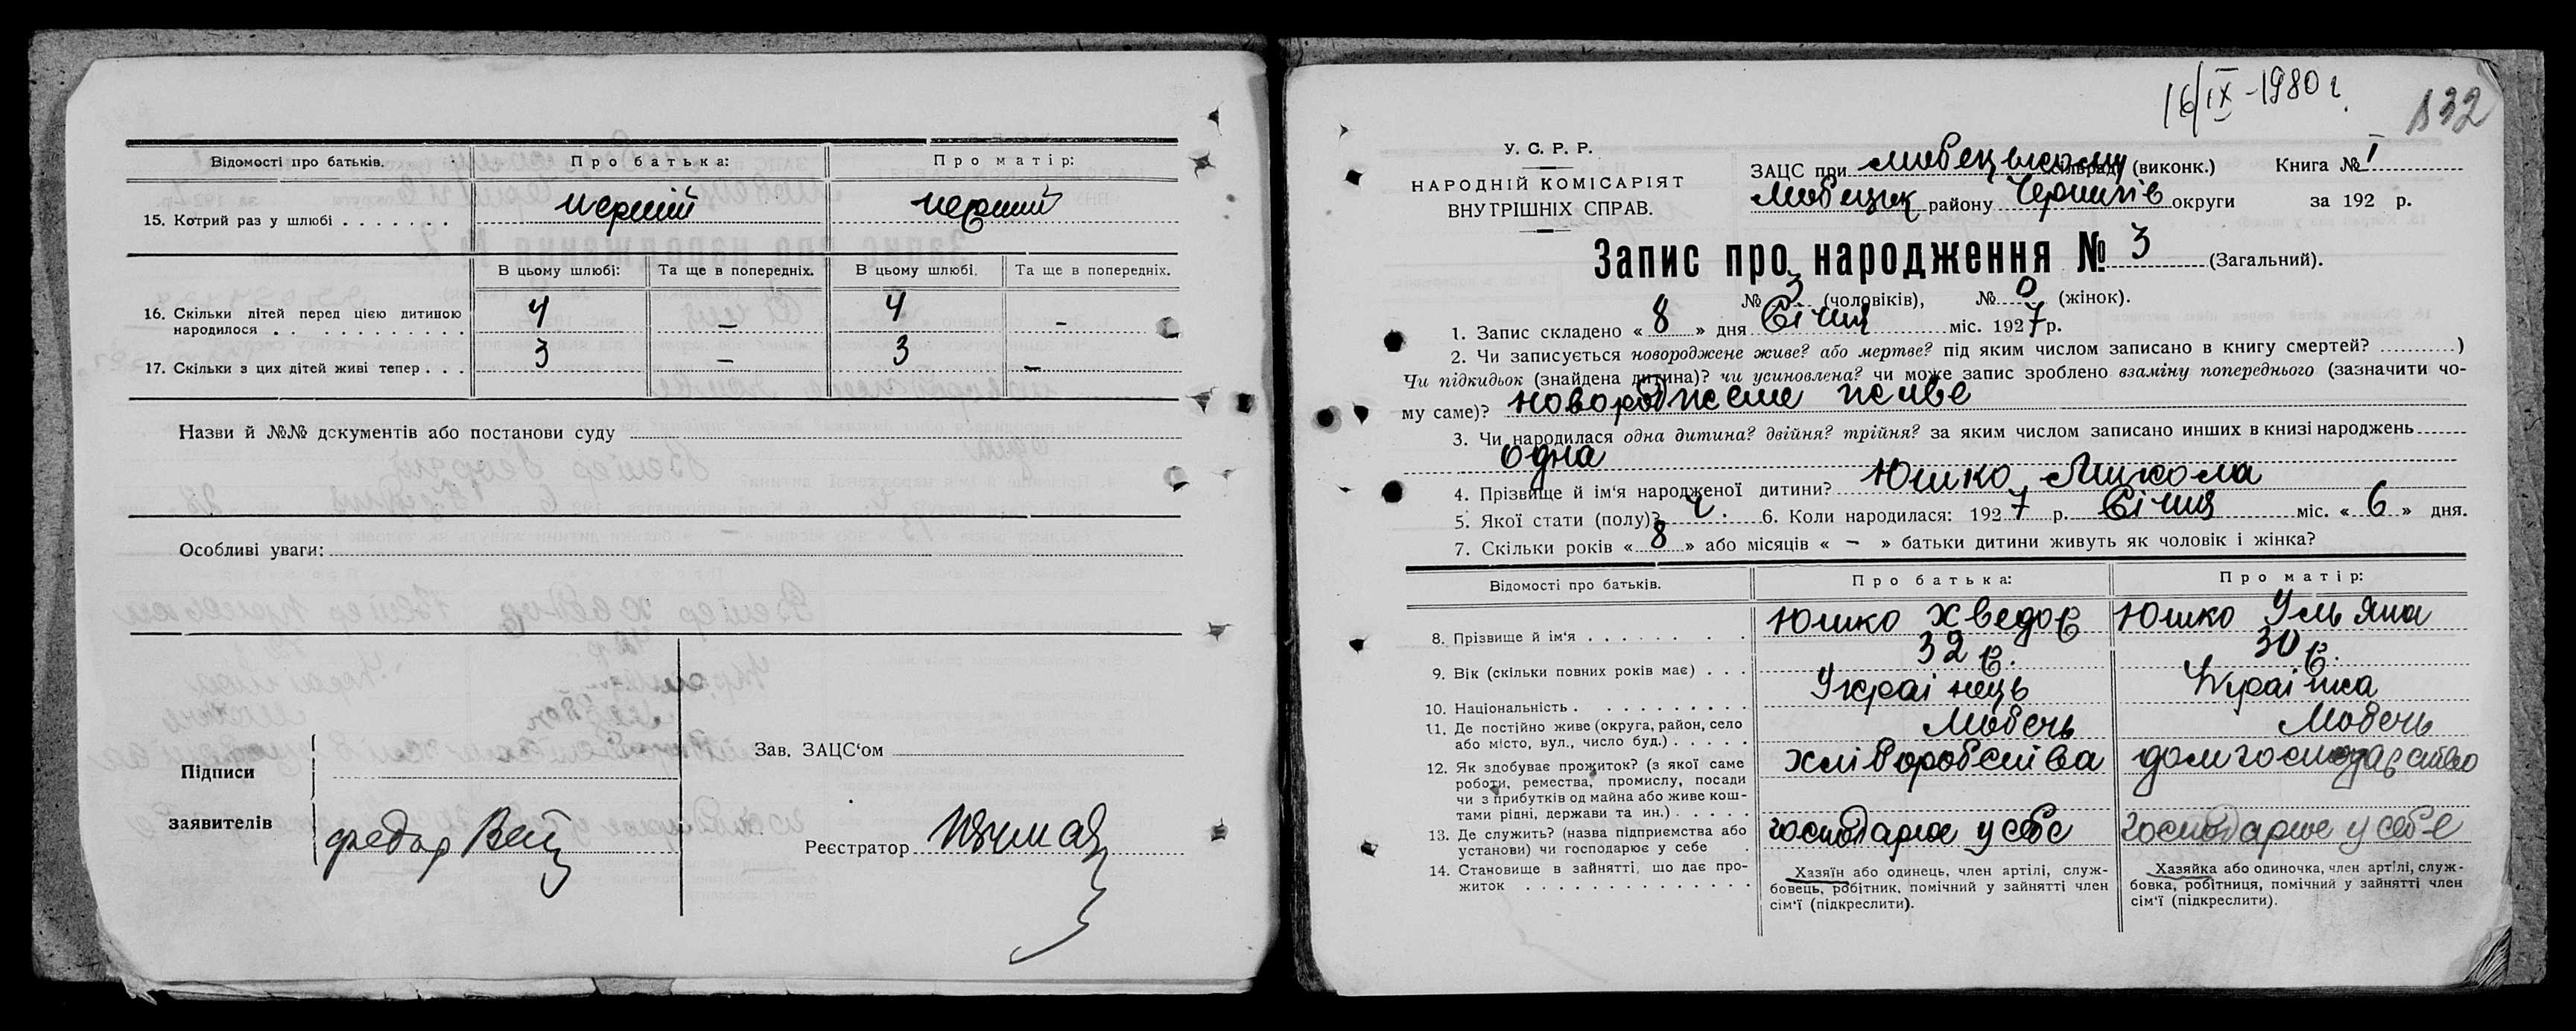 Відомості про батьків. Про батька: Про матір:
15. Котрий раз у шлюбі перший перший
В цьому шлюбі: Та ще в попередніх. В цьому шлюбі. Та ще в попередніх.
16. Скільки дітей перед цією дитиною
народилося 4 – 4 –
17. Скільки з цих дітей живі тепер 3 – 3 –
Назви й №№ документів або постанови суду
Особливі уваги:
Підписи
заявителів
Федор
Зав. ЗАЦС'ом
Реєстратор
16/IX-1980 г.
132
У. С. Р. Р.
НАРОДНІЙ КОМІСАРІЯТ
ВНУТРІШНІХ СПРАВ.
ЗАЦС при Любецькому сільраді (виконк.) Книга № I
Любецьк району Чернигів округи за 192 р.
Запис про народження № 3 (Загальний).
№ 3 (чоловіків), № 0 (жінок).
1. Запис складено « 8 » дня Січня міс. 1927 р.
2. Чи записується новороджене живе? або мертве? під яким числом записано в книгу смертей? )
Чи підкидьок (знайдена дитина)? чи усиновлена? чи може запис зроблено взаміну попереднього (зазначити чо-
му саме)? новороджене живе
3. Чи народилася одна дитина? двійня? трійня? за яким числом записано инших в книзі народжень
одна
4. Прізвище й ім'я народженої дитини? Юшко Микола
5. Якої стати (полу)? ч. 6. Коли народилася: 1927 р. Січня міс. « 6 » дня.
7. Скільки років « 8 » або місяців « – » батьки дитини живуть як чоловік і жінка?
Відомості про батьків. Про батька: Про матір:
8. Прізвище й ім'я Юшко Хведор Юшко Ульяна
9. Вік (скільки повних років має) 32 р. 30 р.
10. Національність Українець Українка
11. Де постійно живе (округа, район, село
або місто, вул., число буд.) Любечь Любечь
12. Як здобуває прожиток? (з якої саме
роботи, ремества, промислу, посади
чи з прибутків од майна або живе кош-
тами рідні, держави та ин.) хліборобства домгосподарство
13. Де служить? (назва підприємства або
установи) чи господарює у себе господарює у себе господарює у себе
14. Становище в зайнятті, що дає про-
житок
Хазяїн або одинець, член артілі, служ-
бовець, робітник, помічний у зайнятті член
сім'ї (підкреслити).
Хазяйка або одиночка, член артілі, служ-
бовка, робітниця, помічний у зайнятті член
сім'ї (підкреслити).